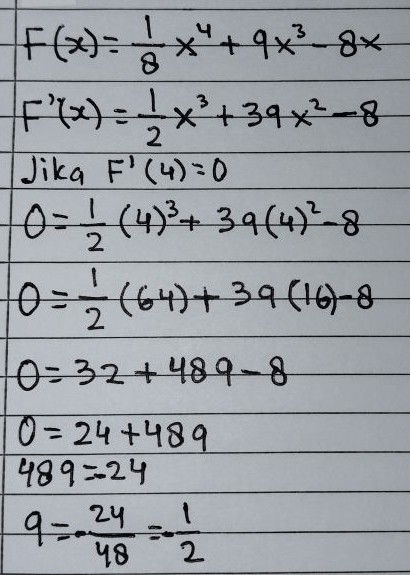 F(x) = 1/8 x⁴ + ax³ - 8x
F'(x) = 1/2 x³ + 3ax² - 8
Jika F'(4) = 0
0 = 1/2 (4)³ + 3a(4)² - 8
0 = 1/2 (64) + 3a(16) - 8
0 = 32 + 48a - 8
0 = 24 + 48a
48a = -24
a = -24/48 = -1/2